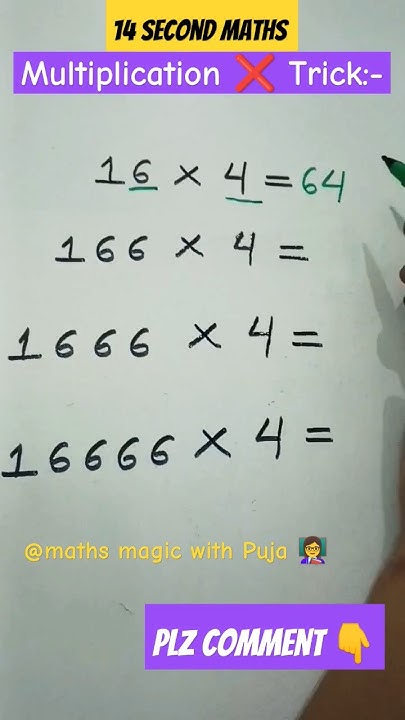 14 SECOND MATHS
Multiplication ❌ Trick:-
16 × 4 = 64
166 × 4 =
1666 × 4 =
16666 × 4 =
@maths magic with Puja 👩‍🏫
PLZ COMMENT 👇